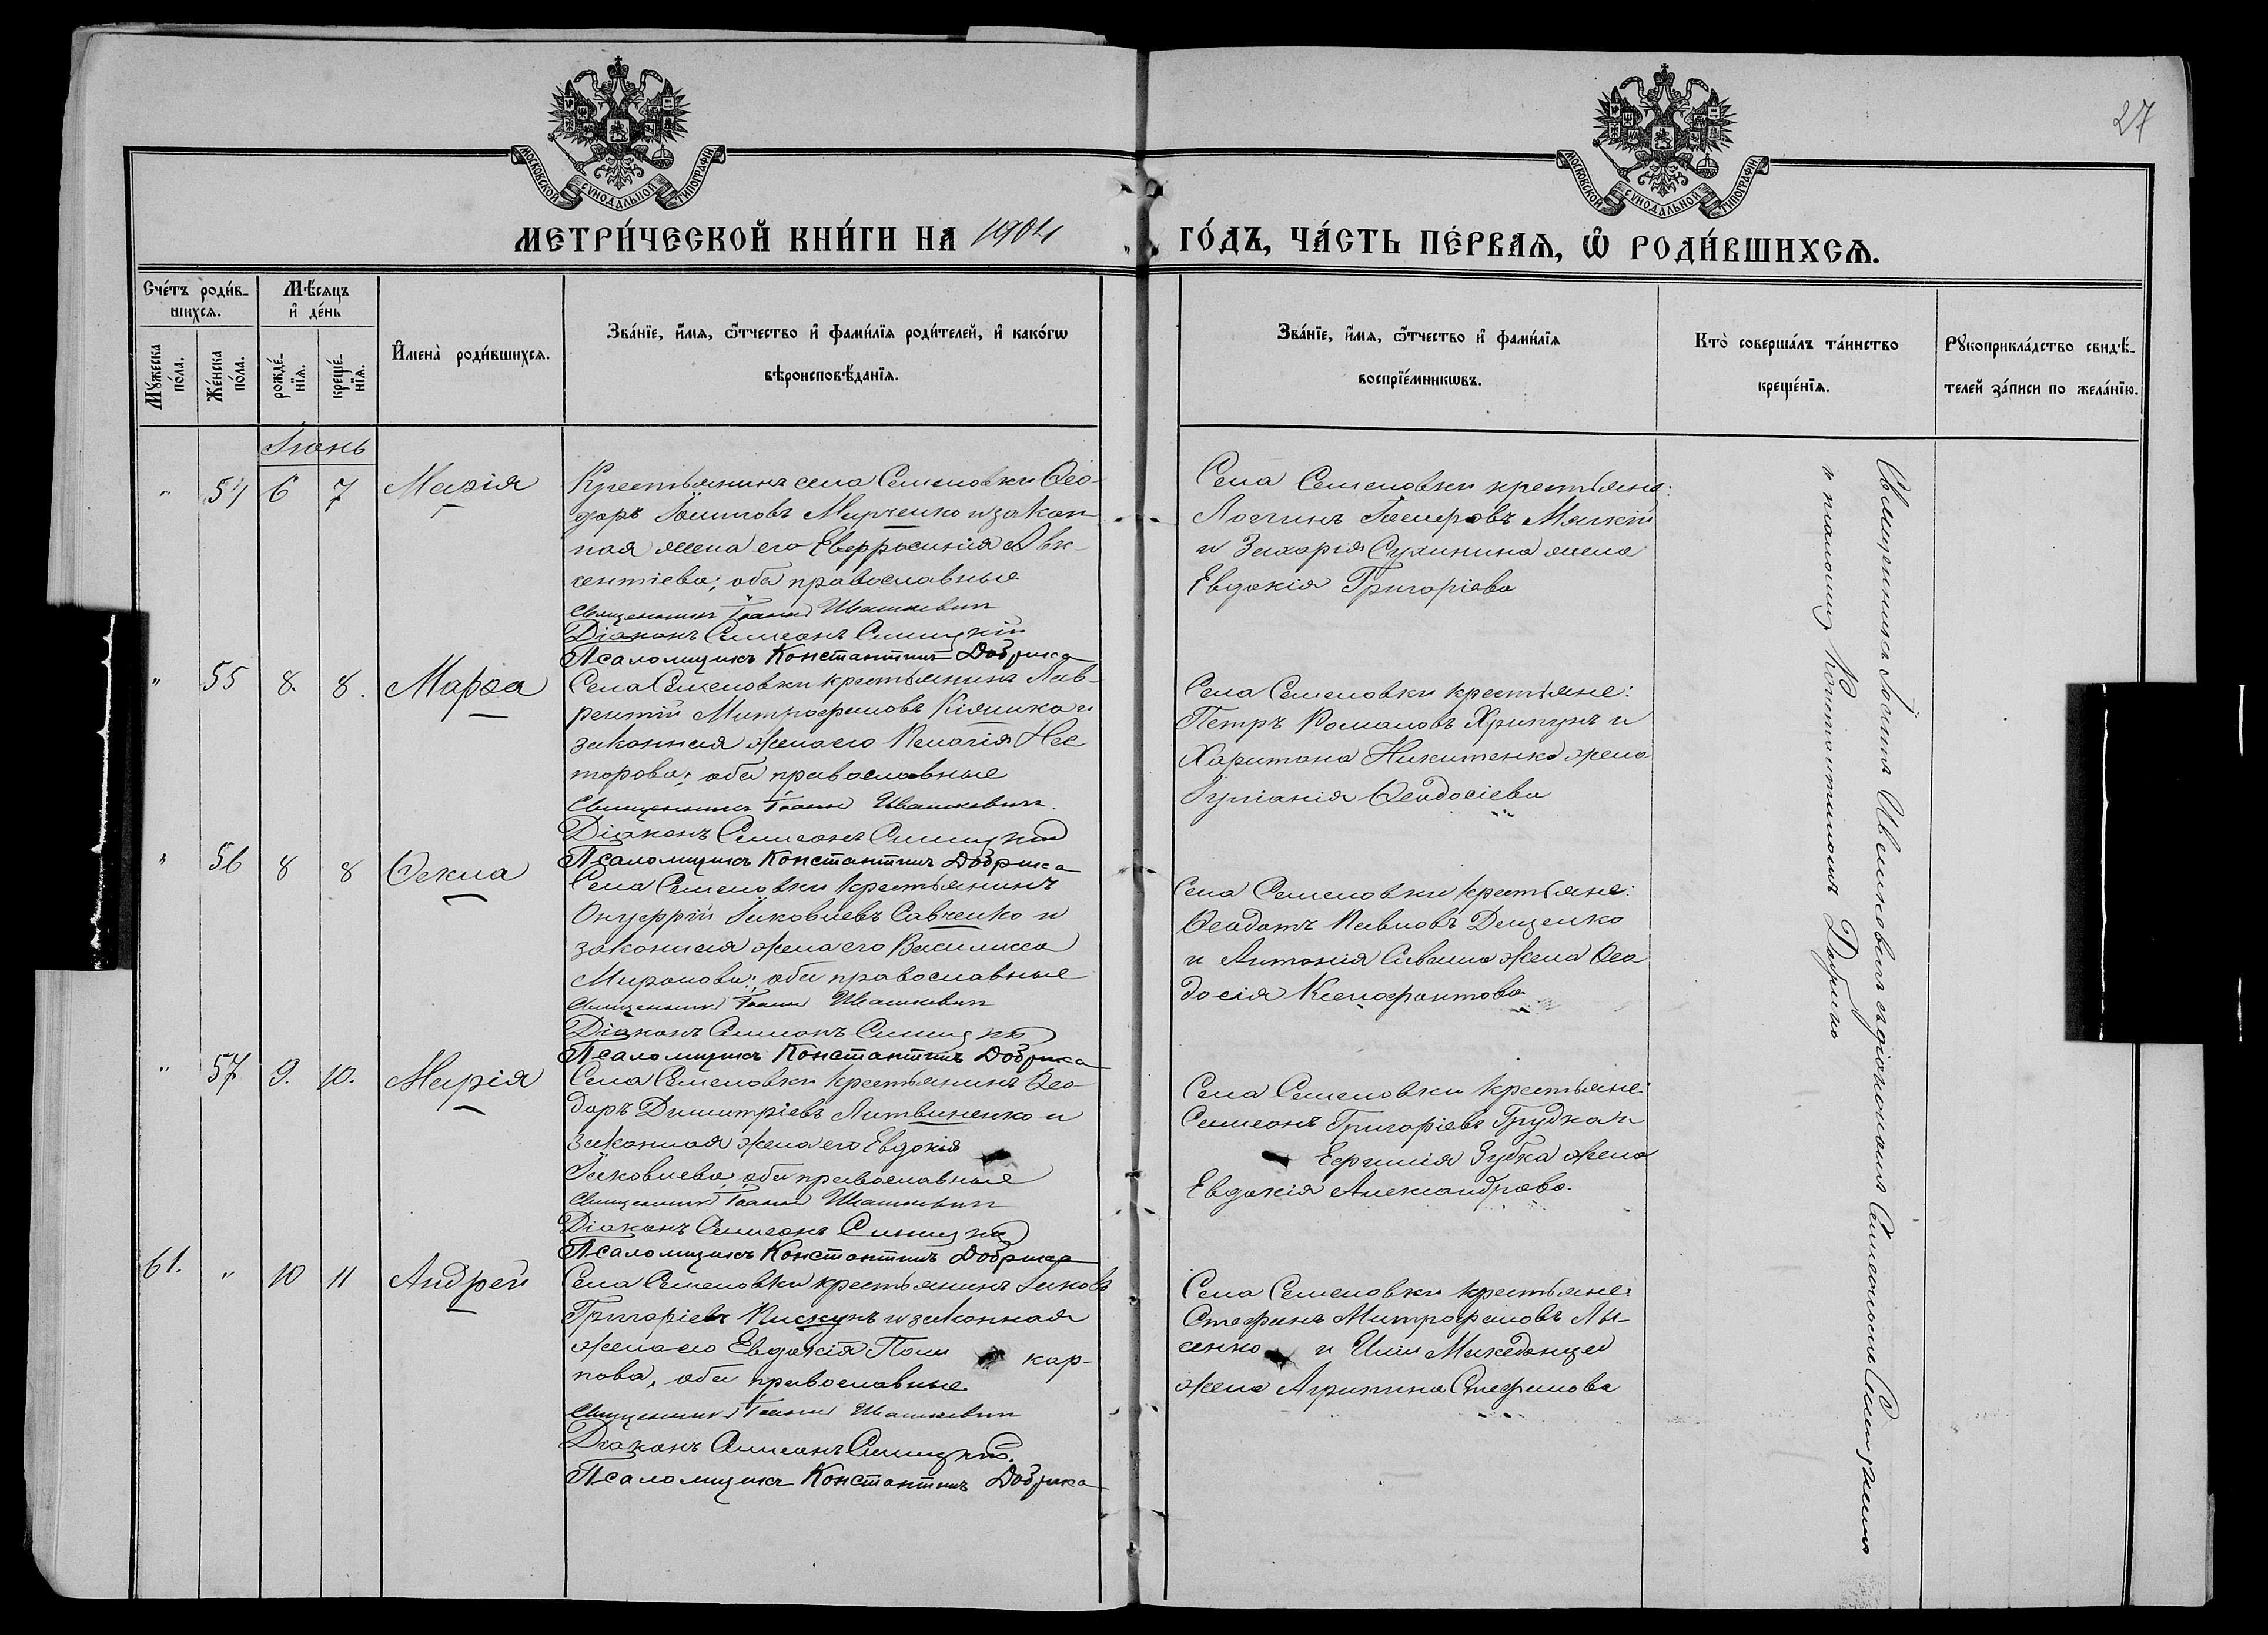 27
МОСКОВСКОЙ СѴНОДАЛЬНОЙ ТИПОГРАФІИ
МОСКОВСКОЙ СѴНОДАЛЬНОЙ ТИПОГРАФІИ
МЕТРИ́ЧЕСКОЙ КНИ́ГИ НА 1904 ГО́ДЪ, ЧА́СТЬ ПЕ́РВАѦ, Ѽ РОДИ́ВШИХСѦ.
Сче́тъ роди́в-
шихсѧ.
Мꙋ́жеска по́ла.
Же́нска по́ла.
Мѣ́сѧцъ и҆ де́нь
рожде́-
нїѧ.
креще́-
нїѧ.
И҆мена̀ роди́вшихсѧ.
Зва́нїе, и҆́мѧ, ѻ҆́тчество и҆ фами́лїѧ роди́телей, и҆ како́гѡ
вѣроисповѣ́данїѧ.
Зва́нїе, и҆́мѧ, ѻ҆́тчество и҆ фами́лїѧ
воспрїе́мникѡвъ.
Кто̀ соверша́лъ та́инство
креще́нїѧ.
Рꙋкоприкла́дство свидѣ́-
телей за́писи по жела́нїю.
Іюнь
" 54 6 7 Марія
Крестьянинъ села Семеновки Ѳео-
доръ Іоакимовъ Марченко и закон-
ная жена его Евфросинія Авк-
сентіева; оба православные
Священникъ Іоаннъ Ивашкевич
Діаконъ Симеонъ Синицкій
Псаломщикъ Константинъ Добрика
Села Семеновки крестьяне:
Логгинъ
и Захарія Сухинина жена
Евдокія Григоріева
" 55 8. 8. Марѳа
Села Семеновки крестьянинъ Лав-
рентій Митрофановъ Кіяшко и
законная жена его Пелагія Нес
торова; оба православные
Священникъ Іоаннъ Ивашкевич.
Діаконъ Симеонъ Синицкій
Псаломщикъ Константинъ Добрика
Села Семеновки крестьяне:
Петръ Романовъ Хрипунъ и
Харитона Никитенко жена
Іуліанія Ѳеодосіева
" 56 8 8 Ѳекла
Села Семеновки крестьянинъ
Онуфрій Іаковлевъ Савченко и
законная жена его Василисса
Миронова; оба православные
Священникъ Іоаннъ Ивашкевич
Діаконъ Симеонъ Синицкій
Псаломщикъ Константинъ Добрика
Села Семеновки крестьяне:
Ѳеодотъ Павловъ Деценко
и Антонія Саваша жена Ѳео
досія Ксенофонтова
" 57 9. 10. Марія
Села Семеновки крестьянинъ Ѳео-
доръ Димитріевъ Литвиненко и
законная жена его Евдокія
Іаковлева, оба православные
Священникъ Іоаннъ Ивашкевич
Діаконъ Симеонъ Синицкій
Псаломщикъ Константинъ Добрика
Села Семеновки крестьяне:
Симеонъ Григоріевъ Грудка и
Ефимія Зубка жена
Евдокія Александрова.
61. " 10 11 Андрей
Села Семеновки крестьянинъ Іаковъ
Григоріевъ Пискунъ и законная
жена его Евдокія Поли кар-
пова, оба православные
Священникъ Іоаннъ Ивашкевич
Діаконъ Симеонъ Синицкій.
Псаломщикъ Константинъ Добрика
Села Семеновки крестьяне:
Стефанъ Митрофановъ Лы-
сенко и Иліи Македонца
жена Агрипина Стефанова
Священникъ Іоаннъ Ивашкевичъ съ діакономъ Симеономъ Синицкимъ
и псаломщ. Константиномъ Добрико